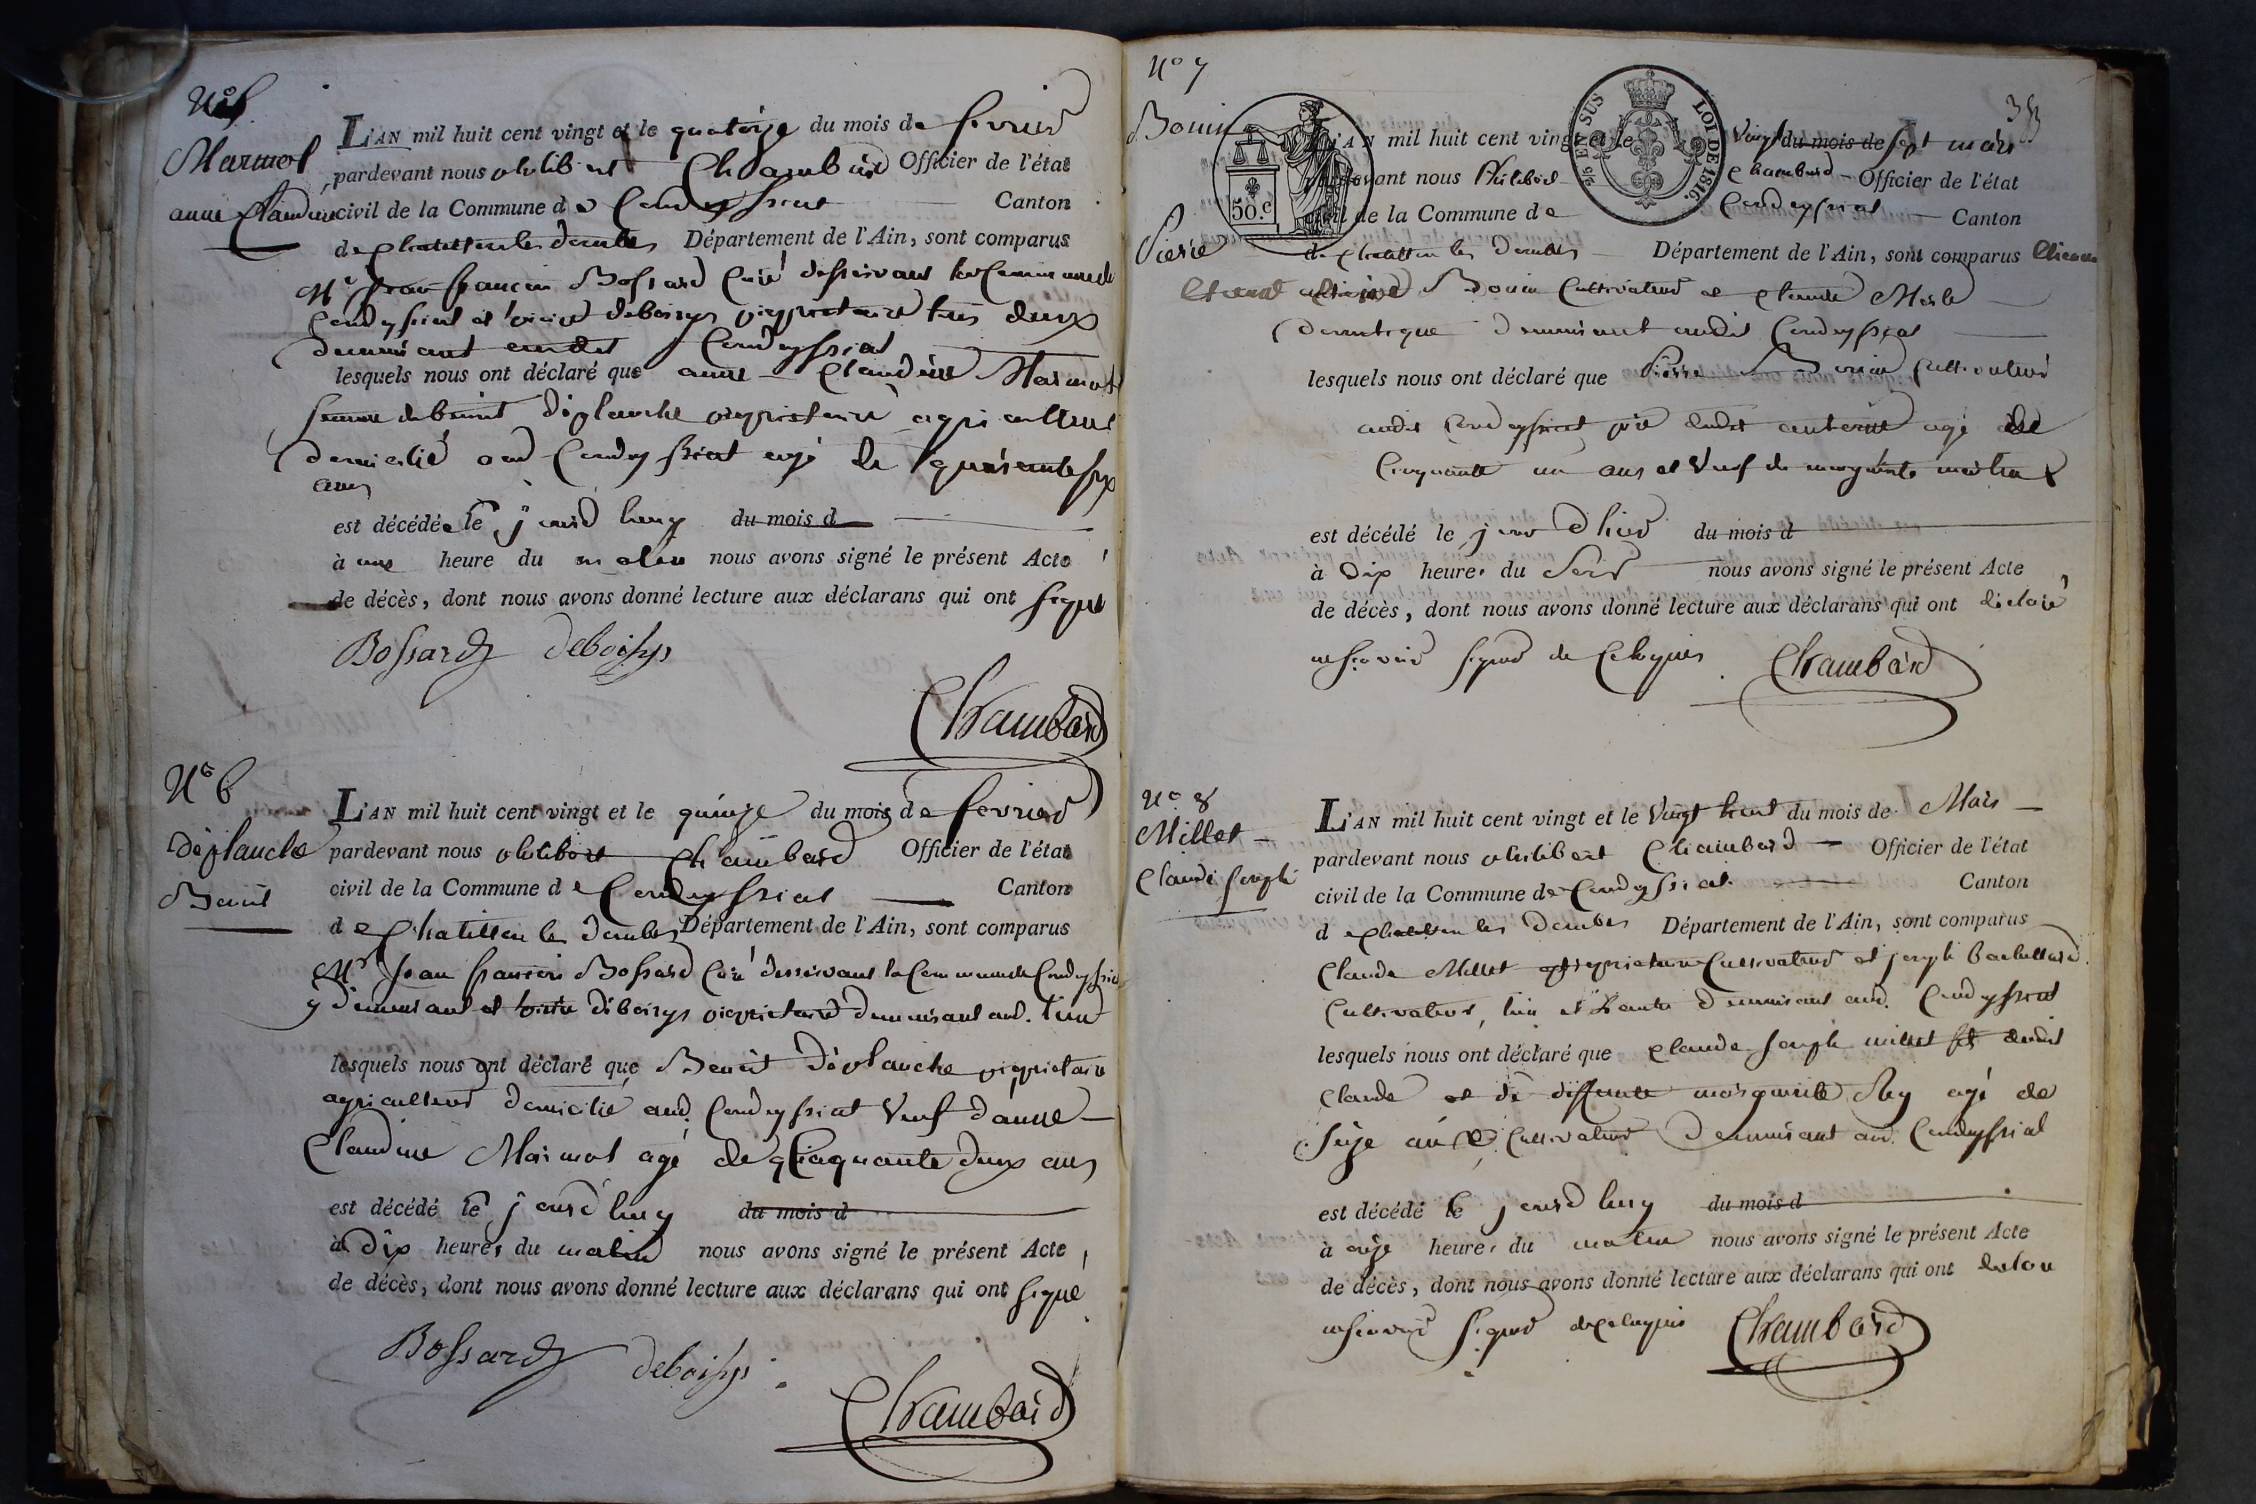 N° 5
Marmot
anne Claudine
L'AN mil huit cent vingt et le quatorze du mois de fevrier
pardevant nous philibert Chambard Officier de l'état
civil de la Commune de Condeyssiat Canton
de Chatillon les dombes Département de l'Ain, sont comparus
Mr Jean françois Bossard Curé desservant la Commune de
Condeyssiat et deboissys propriétaire tous deux
demeurant audit Condeyssiat
lesquels nous ont déclaré que anne Claudine Marmot
femme de benoit déplanche propriétaire agriculteur
domicilié aud Condeyssiat agé de quarante six
ans
est décédée le jourd'huy du mois d
à une heure du matin nous avons signé le présent Acte
de décès, dont nous avons donné lecture aux déclarans qui ont signé
Bossard deboissys
Chambard
N° 6
Déplanche
Benoit
L'AN mil huit cent vingt et le quinze du mois de fevrier
pardevant nous philibert Chambard Officier de l'état
civil de la Commune de Condeyssiat Canton
de Chatillon les dombes Département de l'Ain, sont comparus
Mr Jean françois Bossard Curé desservant la Commune de Condeyssiat
y demeurant et déboissys propriétaire demeurant aud. lieu
lesquels nous ont déclaré que Benoit Déplanche propriétaire
agriculteur domicilié aud. Condeyssiat Veuf d'anne
Claudine Marmot agé de cinquante deux ans
est décédé le jourd'huy du mois d
à dix heures du matin nous avons signé le présent Acte
de décès, dont nous avons donné lecture aux déclarans qui ont signé
Bossard deboissys
Chambard
N° 7
38
Bouin
Pierre
50.c
2/5 EN SUS LOI DE 1816.
L'AN mil huit cent vingt et le Vingt du mois de sept mars
pardevant nous Philibert Chambard Officier de l'état
civil de la Commune de Condeyssiat Canton
de Chatillon les Dombes Département de l'Ain, sont comparus Etienne
Bouin Cultivateur et Claude Merle
domestique demeurant audit Condeyssiat
lesquels nous ont déclaré que Pierre Bouin Cultivateur
audit Condeyssiat père dudit agé de
Cinquante un ans et Veuf de marguerite
est décédé le jour d'hier du mois d
à Dix heures du Soir nous avons signé le présent Acte
de décès, dont nous avons donné lecture aux déclarans qui ont déclaré
ne savoir signer de Ce requis Chambard
N° 8
Millet
Claude Joseph
L'AN mil huit cent vingt et le Vingt huit du mois de Mars
pardevant nous philibert Chambard Officier de l'état
civil de la Commune de Condeyssiat Canton
de Chatillon les Dombes Département de l'Ain, sont comparus
Claude Millet propriétaire Cultivateur et joseph
Cultivateur, l'un et l'autre demeurant aud. Condeyssiat
lesquels nous ont déclaré que Claude Joseph millet fils dudit
Claude et de deffunte marguerite Rey agé de
Seize ans Cultivateur Demeurant aud. Condeyssiat
est décédé le jourd'huy du mois d
à onze heures du matin nous avons signé le présent Acte
de décès, dont nous avons donné lecture aux déclarans qui ont declaré
ne savoir signer de Ce requis Chambard